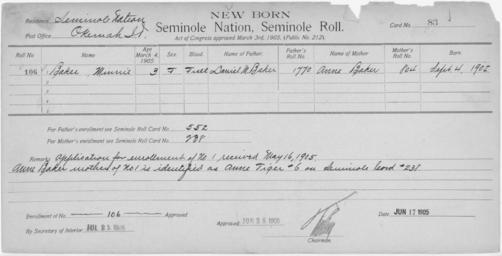 NEW BORN
Residence Seminole Nation
Seminole Nation, Seminole Roll.
Card No. 83
Post Office Okemah I.T.
Act of Congress approved March 3rd, 1905. (Public No. 212).
Roll No. Name Age March 4, 1905. Sex. Blood. Name of Father. Father's Roll No. Name of Mother Mother's Roll No. Born
106 1 Baker Minnie 3 F Full Daniel M. Baker 1770 Anne Baker 804 Sept. 4, 1902
2
3
4
5
For Father's enrollment see Seminole Roll Card No. 552
For Mother's enrollment see Seminole Roll Card No. 238
Remarks Application for enrollment of No. 1 received May 16, 1905.
Anne Baker mother of No 1 is identified as Anne Tiger #6 on Seminole Card #238
Enrollment of No. 106 Approved
Approved
Date, JUN 17 1905
By Secretary of Interior,
Chairman.